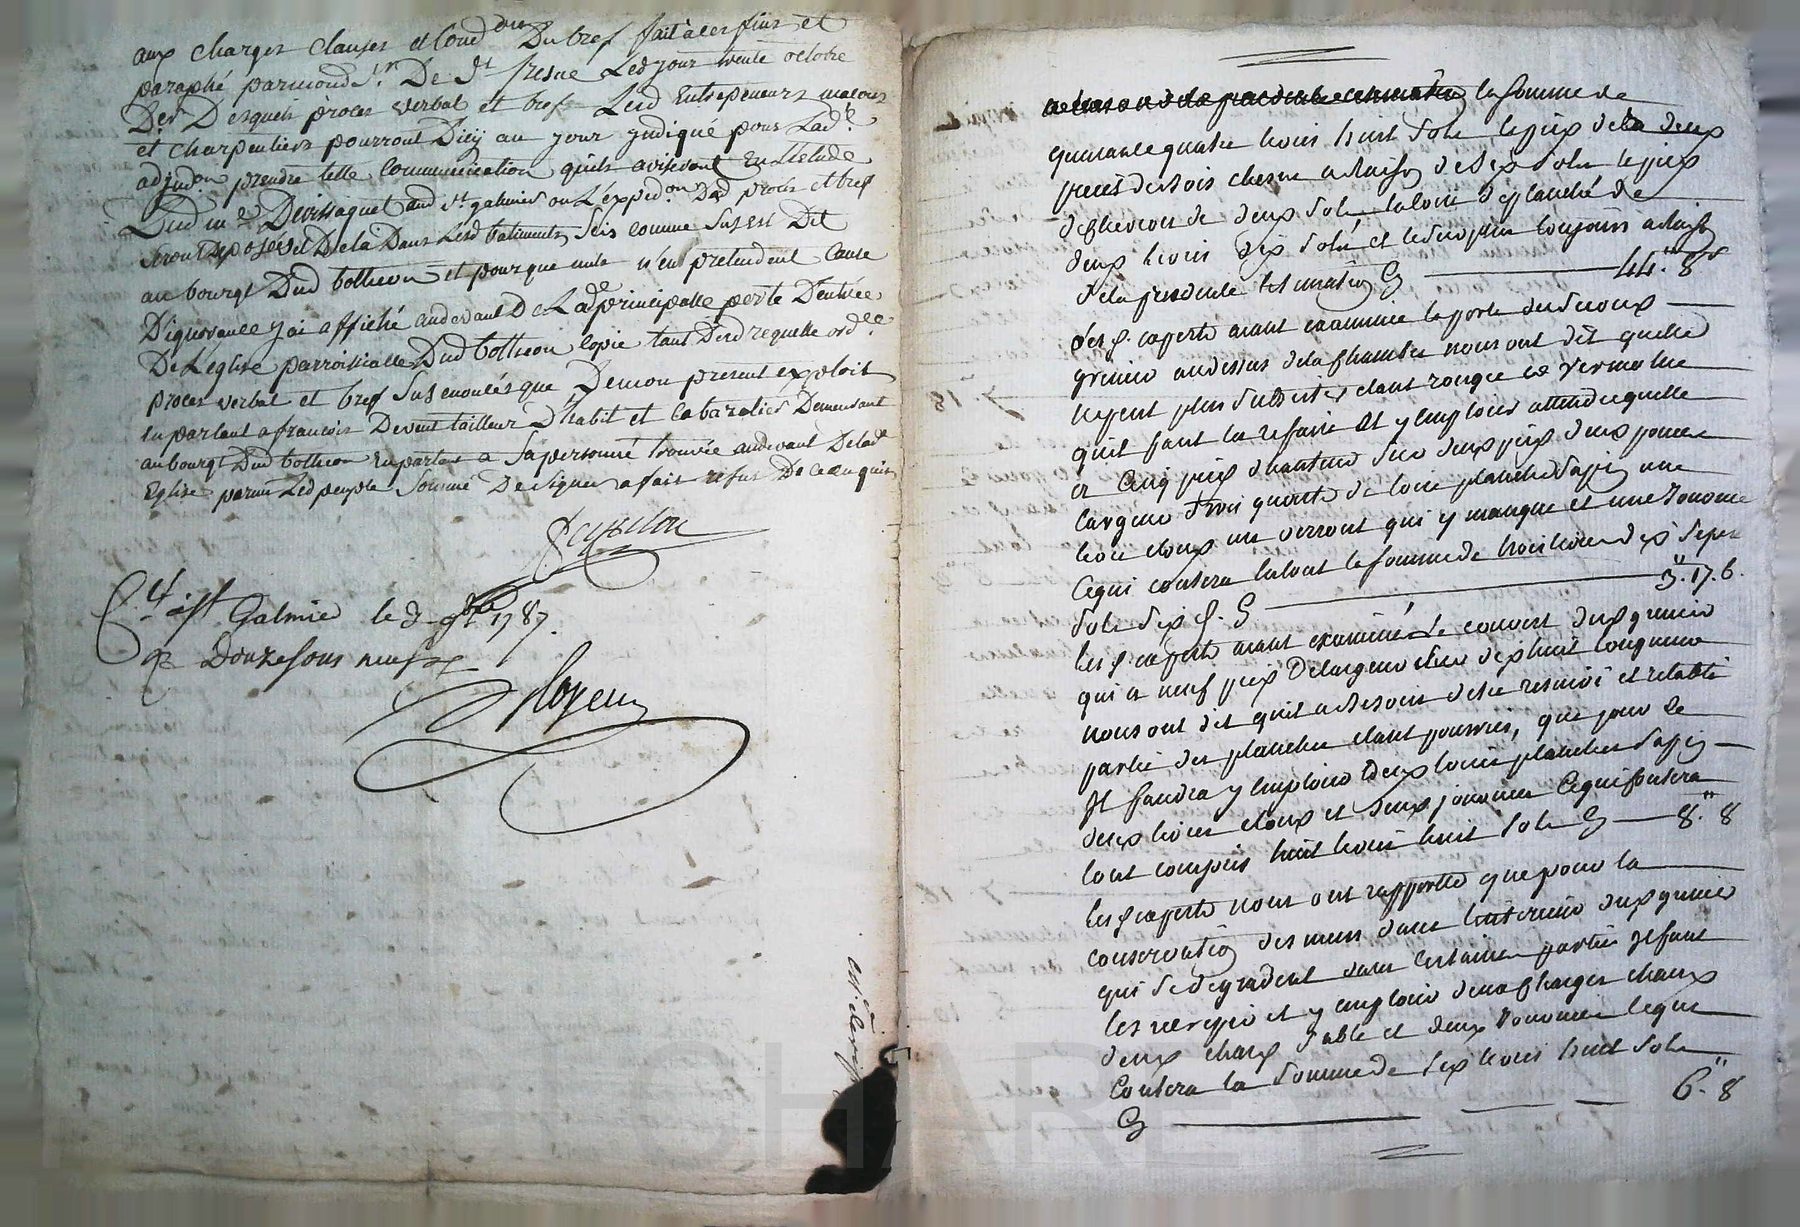 aux charges clauses et cond.ons Du bref fait a ces fins et
paraphé par mond. s.r De St fresne Led. jour trente octobre
Der Desquels procés verbal et bref Lesd Entrepeneurs macons
et charpentiers pourront Dicy au jour yndiqué pour Lad.e
adjud.on prendre telle Communication quils aviseront En Letude
Dud m.e Devissaguet aud St galmier ou L'exped.on Dud procés et bref
seront Deposés et Dela Dans Lesd batiments, Sis comme Susest Dit
au bourgt Dud botheon et pour que nul n'en pretendent Cause
D'ignorance j'ai affiché audevant De Lad.e principalle porte D'entrée
De Leglise parroissialle Dud botheon copie tant Desd requette ord.ce
procés verbal et bref Sus enoncés que Demon present exploit
en parlant a francois Devent tailleur D'habit et Cabaretier Demeurant
au bourgt Dud bothéon En parlant a Sa personne trouvée audevant De lad
Eglise parmi Led peuple Sommé De Signer a fait refus De ce enquis
C.lé à St Galmier le 3 9bre 1787.
Rç Douze sous neuf d
la Somme de
quarante quatre livres huit Sols le pied de deux
pieces de bois chesne a Raison de dix Sols le pied
de chevron de deux Sols la toise de planché de
deux livres dix Sols et le surplus toujours a Raison
de la presente Estimation Cy 44.lt 8s
Les S. experts aiant examiné la porte du Second
grenier au dessus de la Chambre nous ont dit quelle
ne peut plus Subsister etant rongée et vermolue
quil faut la refaire et y employer attendu quelle
a Cinq pieds d'hauteur Sur deux pieds deux pouces
largeur trois quarts de toise planche Sapin une
livre cloux un verrout qui y manque et une journée
Ce qui coutera le tout la Somme de trois livres dix Sept
Sols Six d. Cy 3.lt 17. 6.
les S. experts aiant examiné le couvert dud grenier
qui a neuf pieds de largeur Sur dix huit longueur
nous ont dit quil a besoin d'estre remué et rétabli
partie des planches etant pourries, que pour ce
Il faudra y employer deux toises planches Sapin
deux livres cloux et deux journées Ce qui Coutera
tout compris huit livres huit Sols Cy 8.lt 8
les S. experts nous ont rapporté que pour la
conservation des murs dans l'interieur dud grenier
qui Se degradent dans certaines parties Il faut
les recrepir et y employer deux charges chaux
deux chars Sable et deux journées ce qui
Coutera la Somme de Six livres huit Sols
Cy 6.lt 8